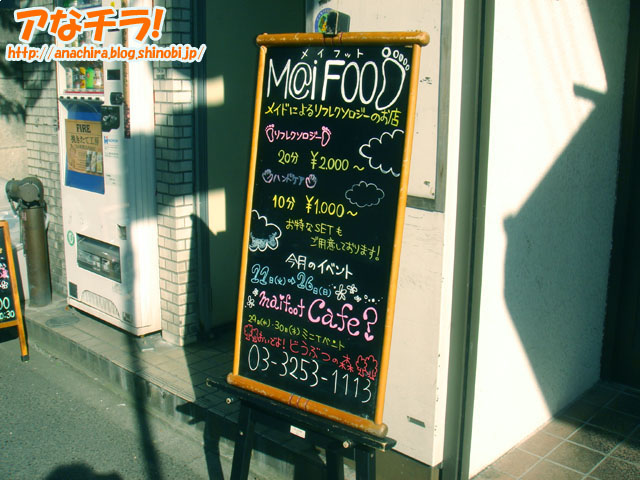 アなチラ!
http://anachira.blog.shinobi.jp/
メイフット
M@iFOOD
メイドによるリフレクソロジーのお店
リフレクソロジー
20分 ¥2.000～
ハンドケア
10分 ¥1.000～
お得なSETも
ご用意しております!
今月のイベント
22日(火)⇒26日(日)
maifoot Cafe?
29日(水)・30日(木)ミニイベント
おいでよ!どうぶつの森
03-3253-1113
FIRE
挽きたて工房
00
0:30